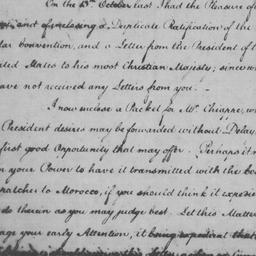 On the 13th October last I had the Pleasure of
and of enclosing a Duplicate Ratification of the
lar Convention, and a Letter from the President of t
ited States to his most Christian Majesty; since w
ave not received any Letters from you. —
I now enclose a Packet for Mr Chiappe, w
President desires may be forwarded without Delay
first good Opportunity that may offer. Perhaps it m
n your Power to have it transmitted with the
patches to Morocco, if you should think it expedie
do therein as you may judge best. Let this Matter
age your early Attention, it being expedient that